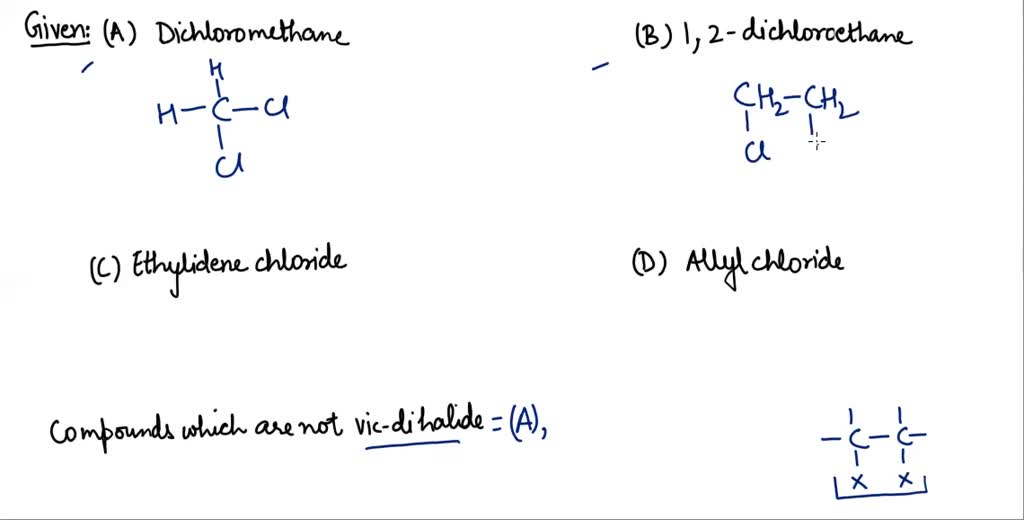 Given: (A) Dichloromethane
(B) 1,2-dichloroethane
H
H-C-Cl
Cl
CH2-CH2
Cl
(C) Ethylidene chloride
(D) Allyl chloride
Compounds which are not vic-dihalide = (A),
-C-C-
x x